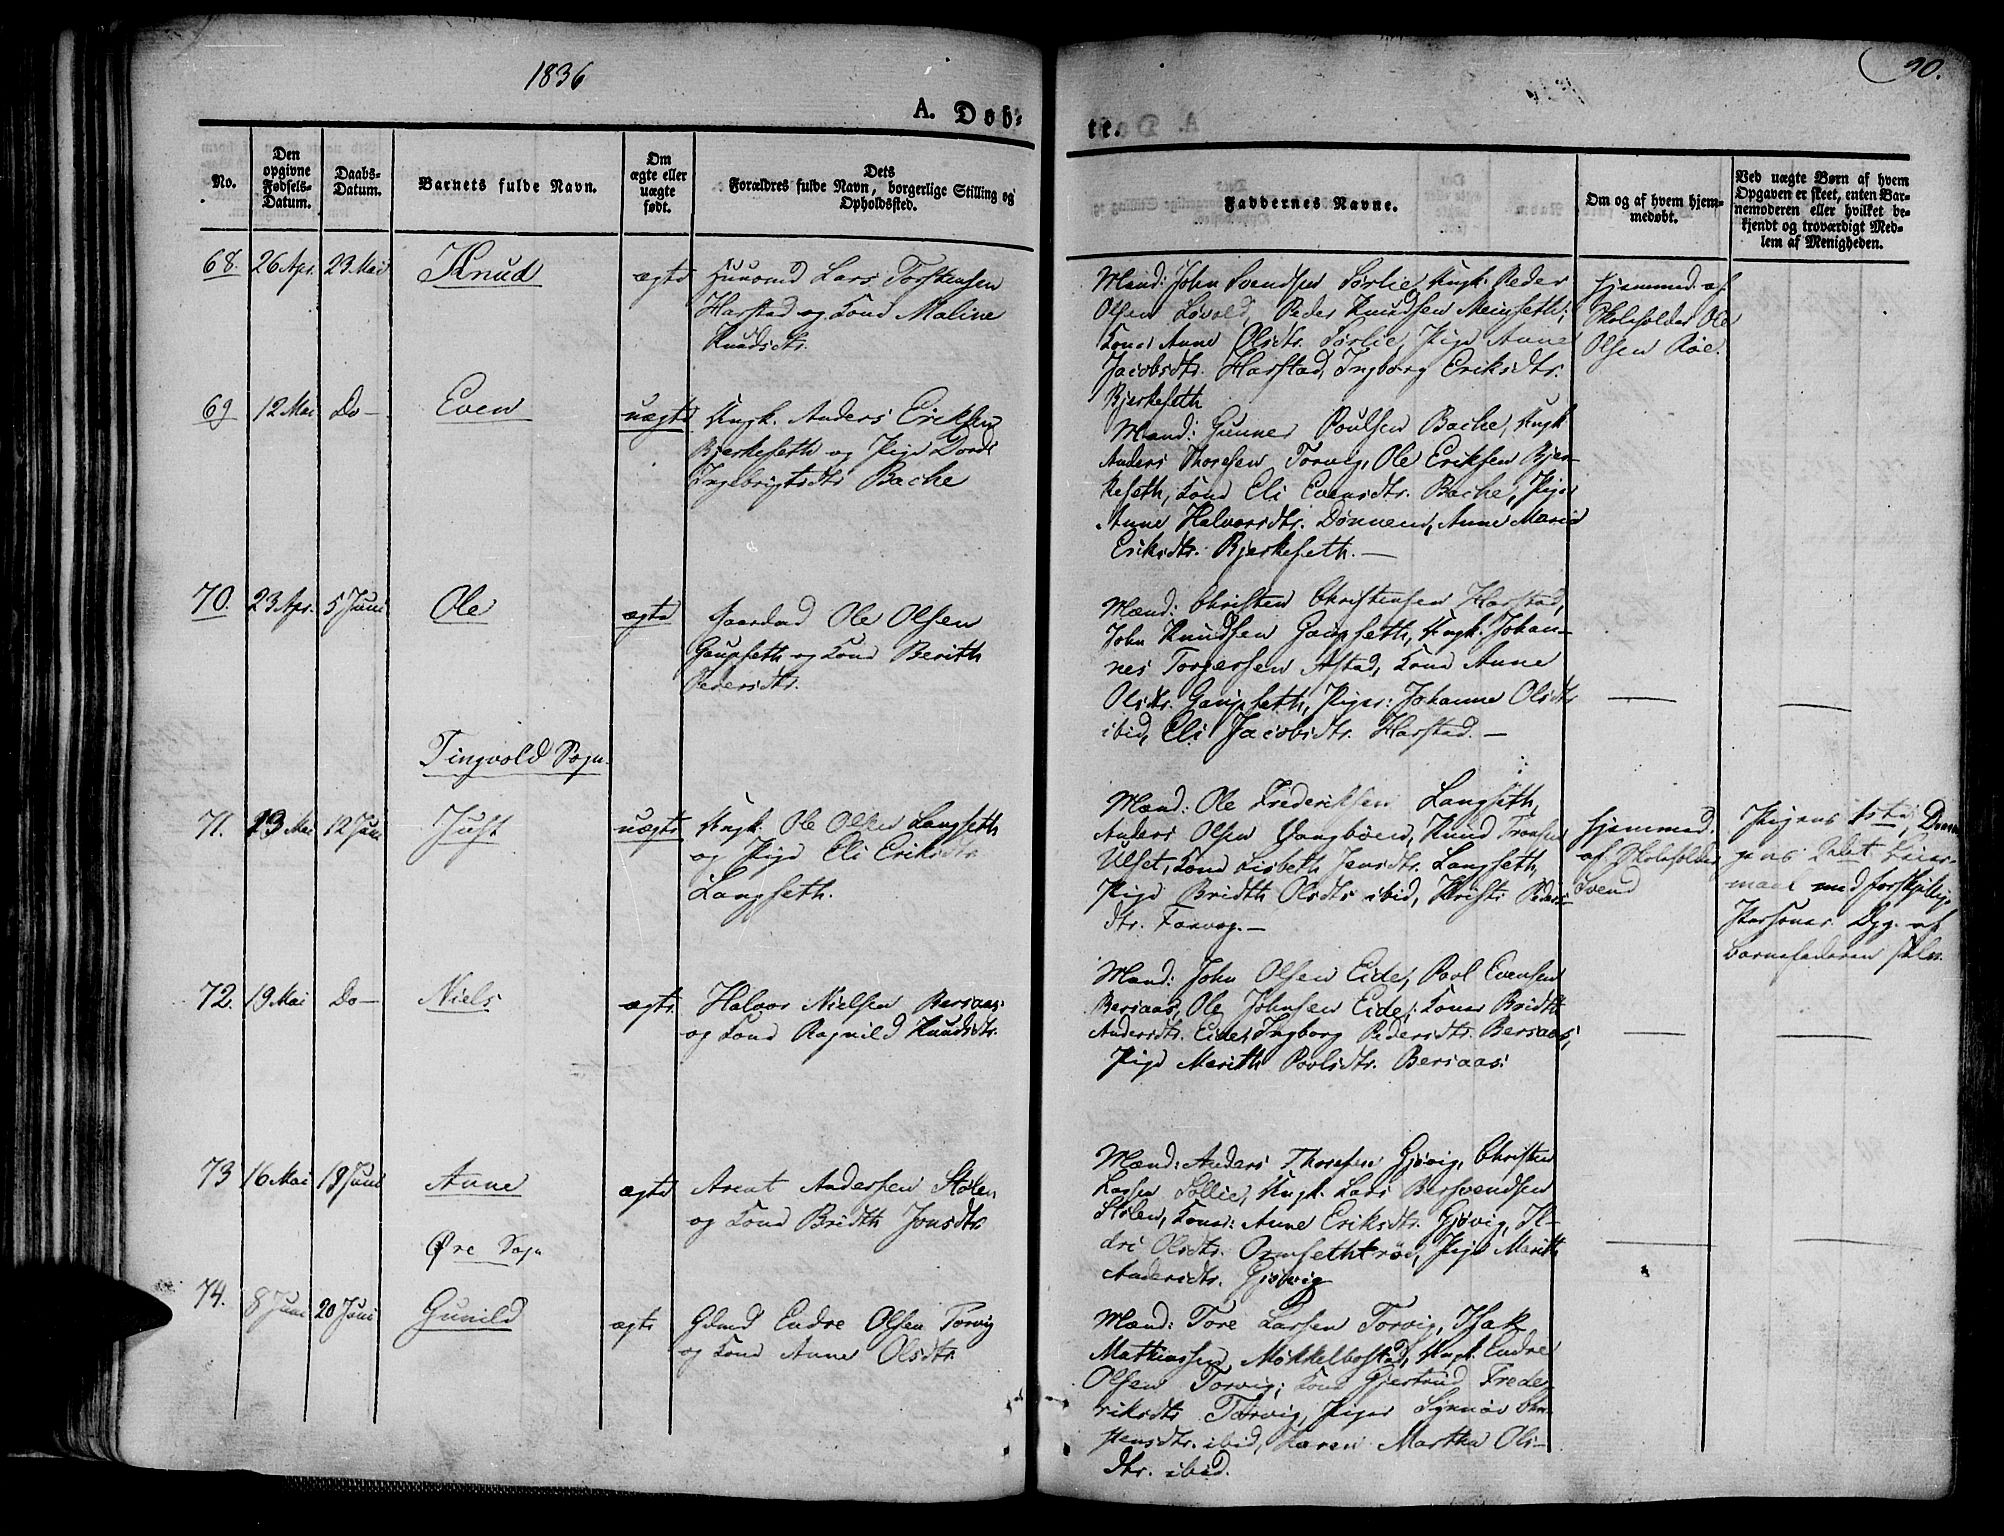 1836
90.
A. Døb-
te.
No.
Den opgivne Fødsels-Datum.
Daabs-Datum.
Barnets fulde Navn.
Om ægte eller uægte født.
Dets Forældres fulde Navn, borgerlige Stilling og Opholdssted.
Faddernes Navne.
Om og af hvem hjem-medøbt.
Ved uægte Børn af hvem Opgaven er skeet, enten Bar-nemoderen eller hvilket be-kjendt og troværdigt Med-lem af Menigheden.
68. 26 Apr. 23 Mai Knud ægte
Huusmd Lars Torstensen
Harstad og Kone Maline
Knudsdtr.
Mænd: John Svendsen Sørlie, Ungk: Peder
Olsen Løvold, Peder Knudsen Meisseth;
Koner Anne Olsdtr. Sørlie, Pige Anne
Jacobsdtr. Harstad, Ingborg Eriksdtr.
Bjerkeseth
Hjemmed. af
Skoleholder Ole
Olsen Røe.
69 12 Mai Do— Even uægte
Ungk. Anders Eriksen
Bjerkeseth og Pige Dordi
Ingebrigtsdtr Bache
Mænd: Gunner Poulsen Bache, Ungk
Anders Thoresen Torvig, Ole Eriksen Bjer-
keseth, Kone Eli Evensdtr. Bache, Piger
Anne Halvorsdtr. Dønnem, Anne Marie
Eriksdtr. Bjerkeseth.—
70. 23 Apr. 5 Juni Ole ægte
Gaardmd Ole Olsen
Gaupseth og Kone Berith
Pedersdtr.
Mænd: Christen Christensen Harstad,
John Knudsen Gaupseth, Ungk. Johan-
nes Torgersen Astad, Kone Anne
Olsdtr. Gaupseth, Piger: Johanne Olsdtr
ibid, Eli Jacobsdtr. Harstad.—
Tingvold Sogn.
71. 13 Mai 12 Juni Just uægte
Ungk. Ole Olsen Langseth
og Pige Eli Eriksdtr
Langseth.
Mænd: Ole Frederiksen Langseth,
Anders Olsen Vangbøen, Knud Tronsen
Ulset, Kone Lisbeth Jensdtr. Langseth,
Pige Bridth Olsdtr ibid, Kristi Peders-
dtr. Farvog.—
Hjemmed.
af Skoleholder
Svend
Pigens 1ste, Dren-
gens 2det Leier-
maal med forskjellige
Personer. Opg. af
barnefaderen selv.
72. 19 Mai Do— Niels ægte
Halvor Nielsen Bersaas
og Kone Ragnild Knudsdtr.
Mænd: John Olsen Eide, Povl Evensen
Bersaas, Ole Johnsen Eide; Koner Bridth
Andersdtr. Eide, Ingborg Pedersdtr. Bersaas;
Pige Merith Povlsdtr. Bersaas.
73 16 Mai 19 Juni Anne ægte
Arent Andersen Stølen
og Kone Bridth Jonsdtr
Mænd: Anders Thoresen Gjøvig, Christen
Larsen Sollie, Ungk. Lars Bersvendsen
Stølen, Koner: Anne Eriksdtr. Gjøvig, Il-
dri Olsdtr. Ormsethtrøe, Pige Marith
Andersdtr. Gjøvig
Øre Sogn
74. 8 Juni 20 Juni Gunild ægte
Gdmd Endre Olsen Torvig
og Kone Anne Olsdtr.
Mænd: Tore Larsen Torvig, Isak
Mathiassen Mökkelbostad, Ungk. Endre
Olsen Torvig; Kone Gjertrud Frede-
riksdtr Torvig, Piger Synnøv Chri-
stensdtr. ibid, Karen Martha Ols-
dtr. ibid.